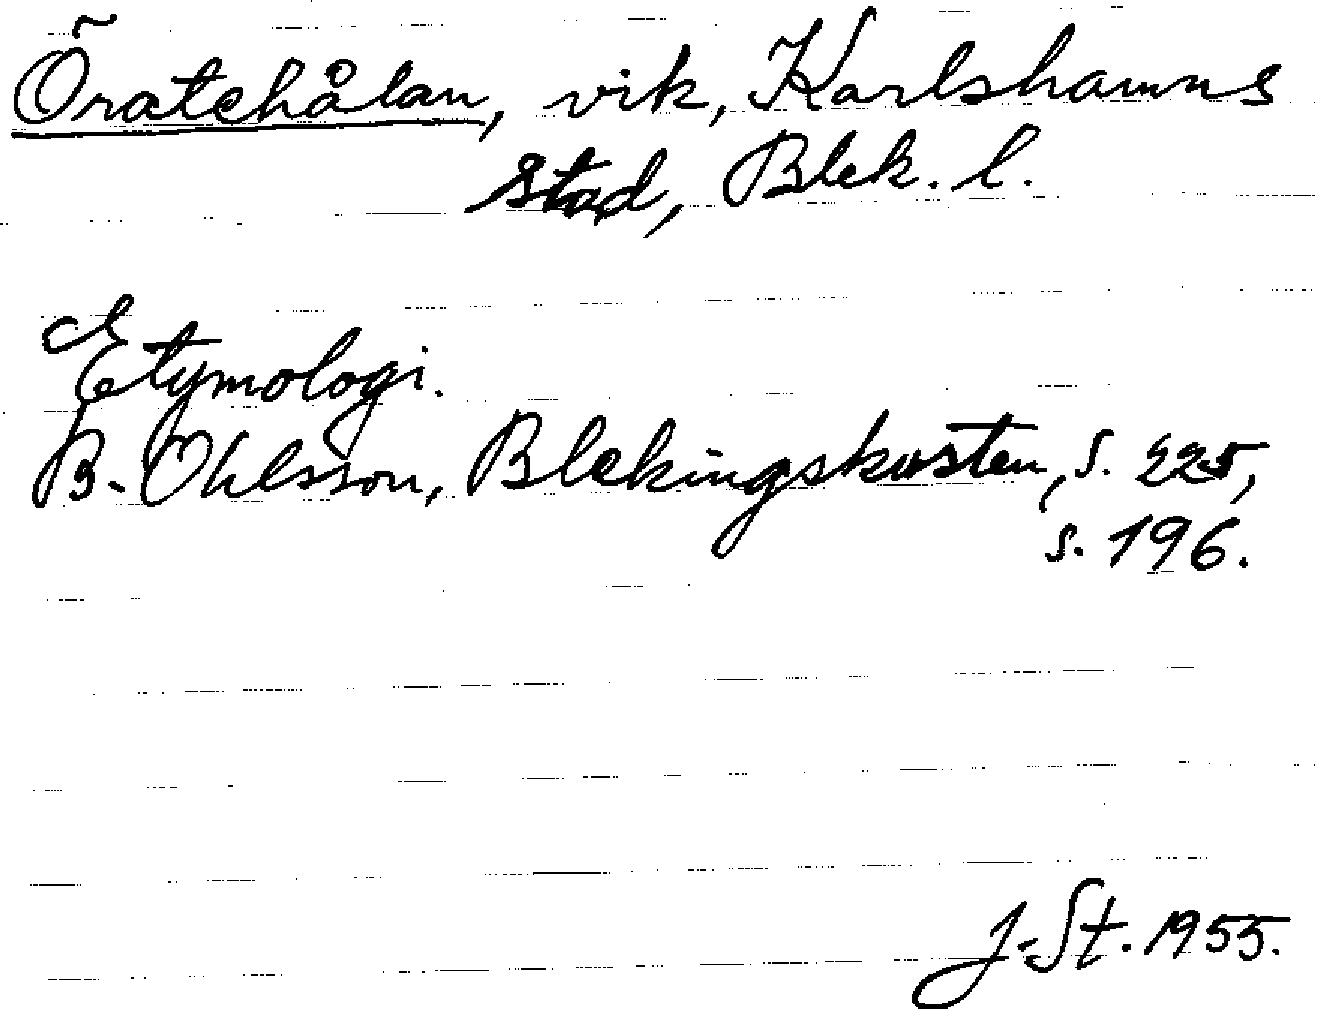 Öratehålan, vik, Karlshamns
stad, Blek. l.
Etymologi.
B. Ohlsson, Blekingskusten, s. 225,
s. 196.
J. St. 1955.